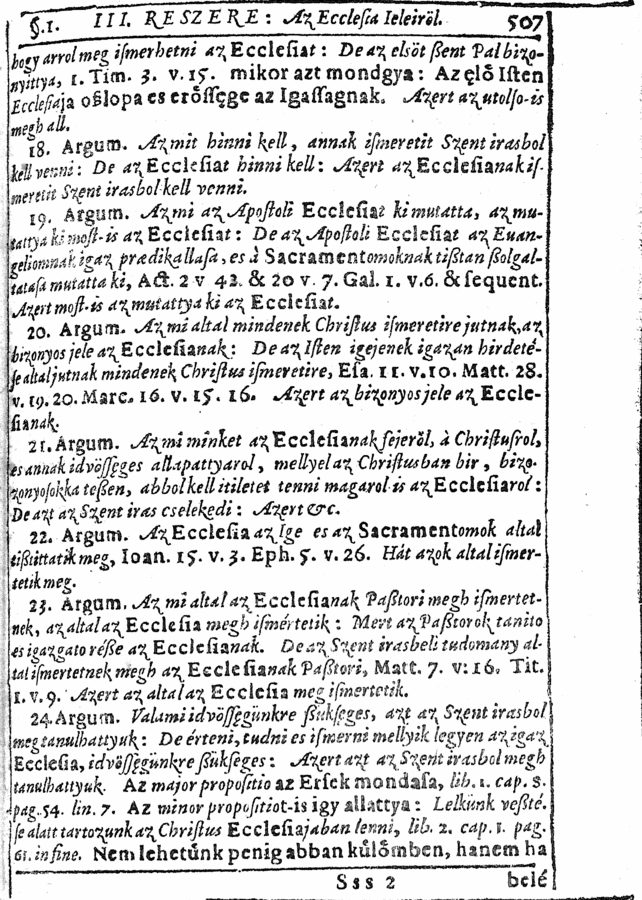 §.1. III. RESZERE: Az Ecclesia Ieleiröl. 507
hogy arrol meg iſmerhetni az Eccleſiat: De az elsöt ſzent Pal bizo-
nyittya, 1. Tim. 3. v. 15. mikor azt mondgya: Az ęlő Iſten
Eccleſiaja oßlopa es erőſſęge az Igaſſagnak. Azert az utolſo-is
megh all.
18. Argum. Az mit hinni kell, annak iſmeretit Szent irasbol
kell venni: De az Eccleſiat hinni kell: Azert az Eccleſianak iſ-
meretit Szent irasbol kell venni.
19. Argum. Az mi az Apoſtoli Eccleſiat ki mutatta, az mu-
tattya ki moſt-is az Eccleſiat: De az Apoſtoli Eccleſiat az Euan-
geliomnak igaz prædikallaſa, es à Sacramentomoknak tißtan ßolgal-
tataſa mutatta ki, Act. 2 v 42. & 20 v. 7. Gal. 1. v.6. & ſequent.
Azert moſt-is az mutattya ki az Eccleſiat.
20. Argum. Az mi altal mindenek Chriſtus iſmeretire jutnak, az
bizonyos jele az Eccleſianak: De az Iſten igejenek igazan hirdeté-
ſe altal jutnak mindenek Chriſtus iſmeretire, Eſa. 11. v.10. Matt. 28.
v. 19. 20. Marc. 16. v. 15. 16. Azert az bizonyos jele az Eccle-
ſianak.
21. Argum. Az mi minket az Eccleſianak fejeröl, à Chriſtuſrol,
es annak idvöſſeges allapattyarol, mellyel az Chriſtusban bir, bizo-
zonyoſokka teßen, abbol kell itiletet tenni magarol-is az Eccleſiarol:
De azt az Szent iras cselekedi: Azert &c.
22. Argum. Az Eccleſia az Ige es az Sacramentomok altal
tißtittatik meg, Ioan. 15. v. 3. Eph. 5. v. 26. Hát azok altal iſmer-
tetik meg.
23. Argum. Az mi altal az Eccleſianak Paßtori megh iſmertet-
nek, az altal az Eccleſia megh iſmértetik: Mert az Paßtorok tanito
es igazgato réße az Eccleſianak. De az Szent irasbeli tudomany al-
tal iſmertetnek megh az Eccleſianak Paßtori, Matt. 7. v: 16. Tit.
1. v. 9. Azert az altal az Eccleſia meg iſmertetik.
24. Argum. Valami idvöſſęgünkre ßükſęges, azt az Szent irasbol
meg tanulhattyuk: De érteni, tudni es iſmerni mellyik legyen az igaz
Eccleſia, idvöſſęgünkre ßükſeges: Azert azt az Szent irasbol megh
tanulhattyuk. Az major propoſitio az Erſek mondaſa, lib. 1. cap. 8.
pag. 54. lin. 7. Az minor propoſitiot-is igy allattya: Lelkünk veßté-
ſe alatt tartozunk az Chriſtus Eccleſiajaban lenni, lib. 2. cap. 1. pag.
61. in fine. Nem lehetünk penig abban kűlőmben, hanem ha
Sss 2 belé